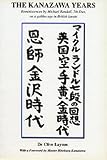 THE KANAZAWA YEARS
Reminiscences by Michael Randall, 7th Dan,
on a golden age in British karate
マイケル ランドル七段の回想
英国空手黄金時代
恩師金沢時代
Dr Clive Layton
With a Foreword by Master Hirokazu Kanazawa